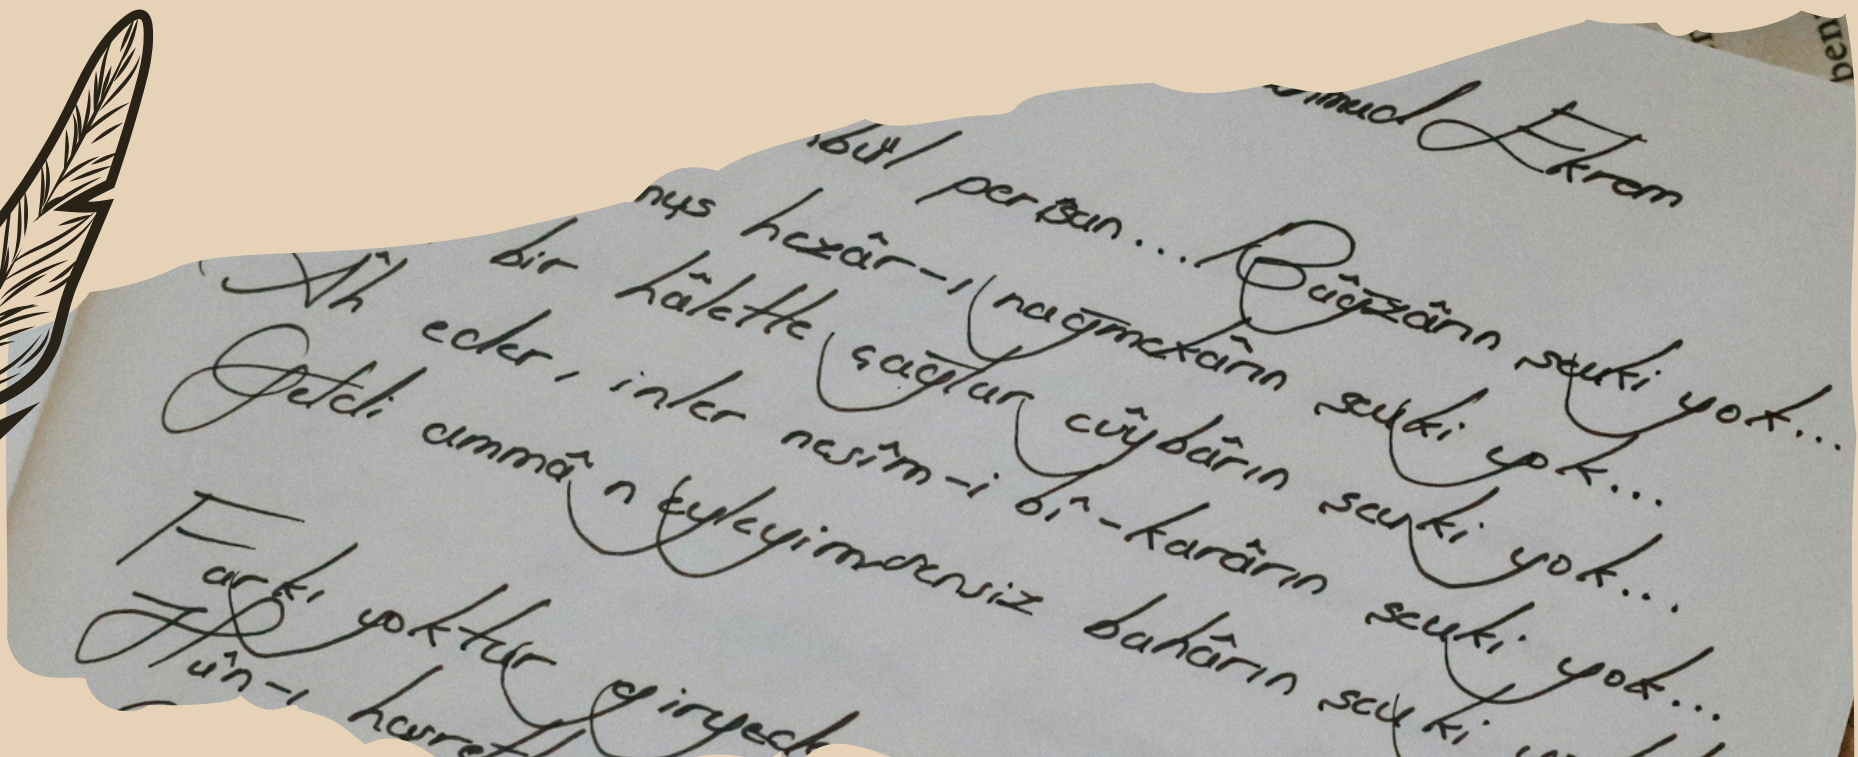 Ekrem
perîşan... Bâğzârın şevki yok...
hezâr-ı nağmekârın şevki yok...
bir hâlette çağlar cûybârın şevki yok...
Âh eder, inler nesîm-i bî-karârın şevki yok...
Geldi ammâ n'eyleyim sensiz bahârın şevki yok
Farkı yoktur giryed
Hûn-ı hasretl
ben